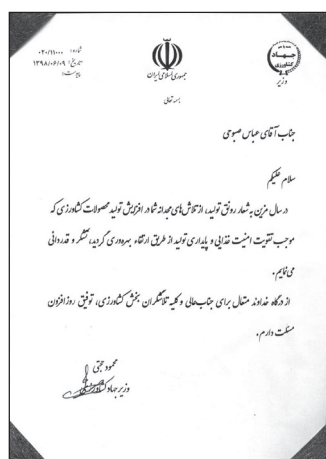 شماره: ۰۲۰/۱۱۰۰۰
تاریخ: ۱۳۹۸/۰۶/۰۹
پیوست:
جمهوری اسلامی ایران
جهاد
کشاورزی
وزیر
بسمه تعالی
جناب آقای عباس صبوحی
سلام علیکم
در سال مزین به شعار رونق تولید، از تلاش های مجدانه شما در افزایش تولید محصولات کشاورزی که
موجب تقویت امنیت غذایی و پایداری تولید از طریق ارتقاء بهره‌وری گردید، تشکر و قدردانی
می نمایم.
از درگاه خداوند متعال برای جناب‌عالی و کلیه تلاشگران بخش کشاورزی، توفیق روز افزون
مسئلت دارم.
محمود حجتی
وزیر جهاد کشاورزی